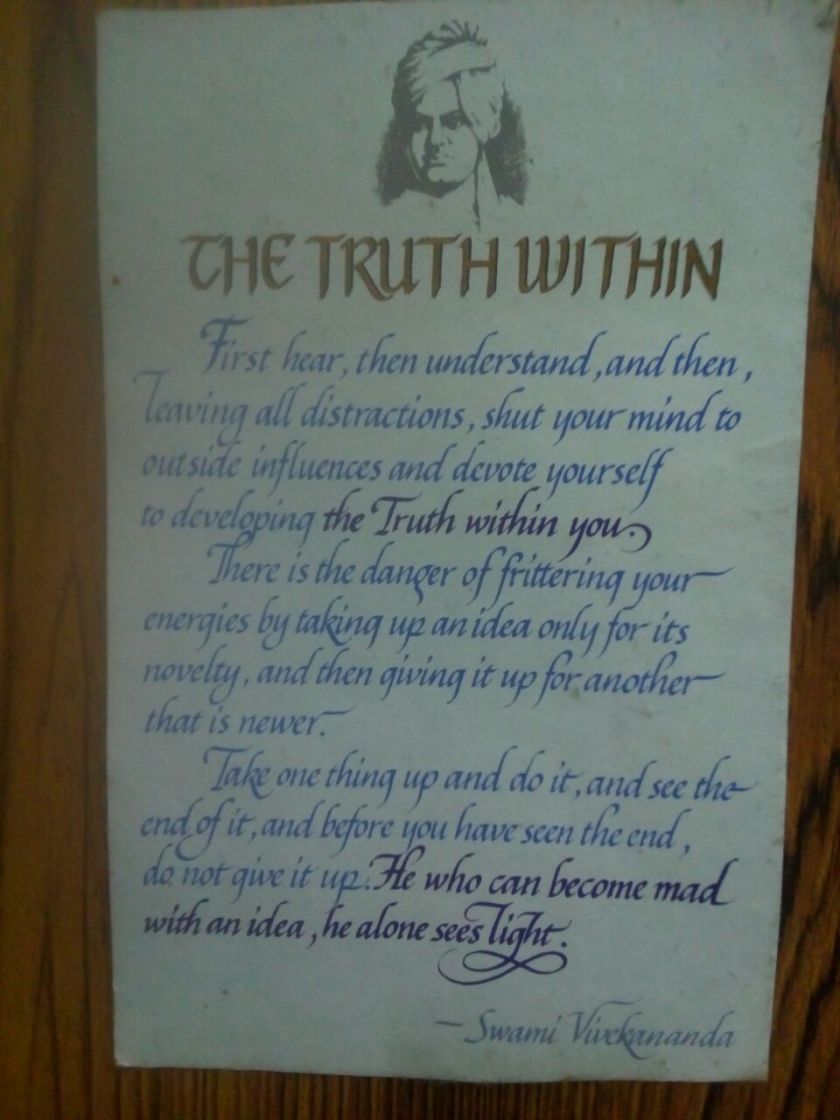 THE TRUTH WITHIN
First hear, then understand, and then,
leaving all distractions, shut your mind to
outside influences and devote yourself
to developing the Truth within you.
There is the danger of frittering your
energies by taking up an idea only for its
novelty, and then giving it up for another
that is newer.
Take one thing up and do it, and see the
end of it, and before you have seen the end,
do not give it up. He who can become mad
with an idea, he alone sees light.
- Swami Vivekananda